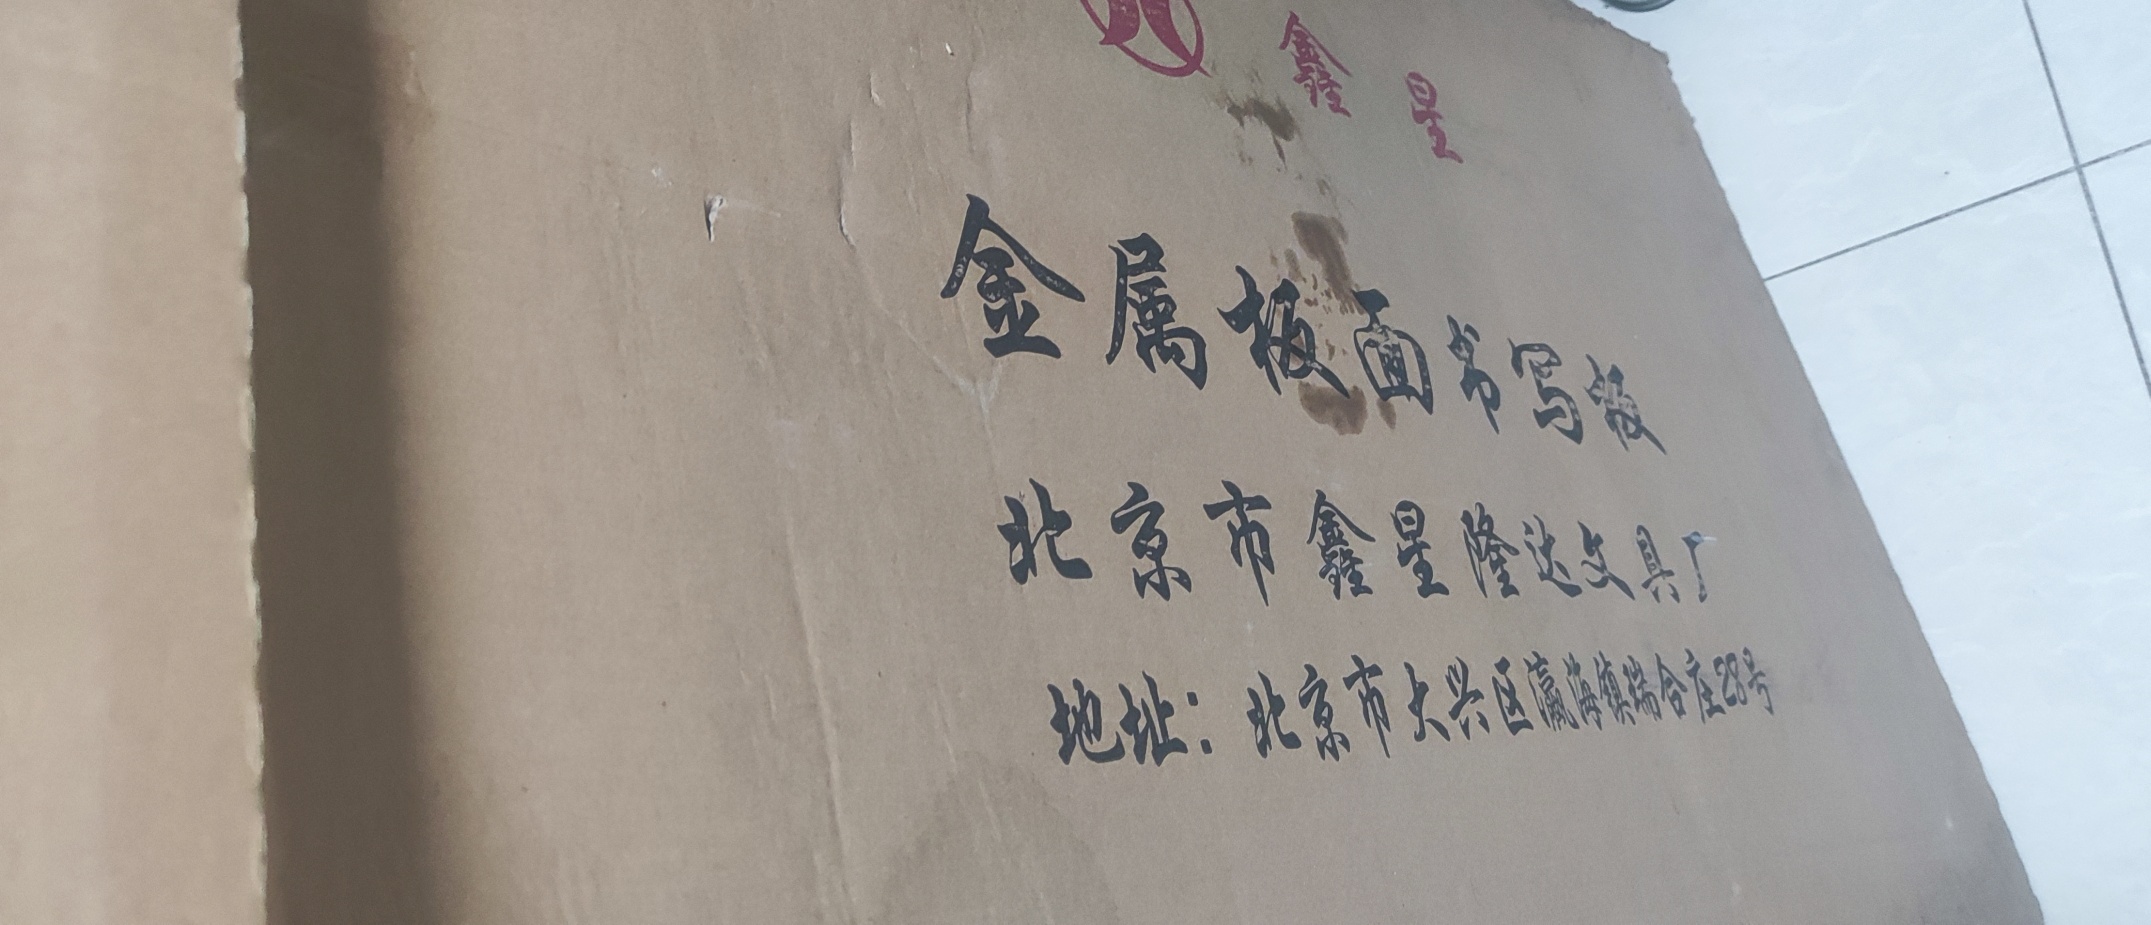 鑫星
金属板面书写板
北京市鑫星隆达文具厂
地址：北京市大兴区瀛海镇瑞合庄28号